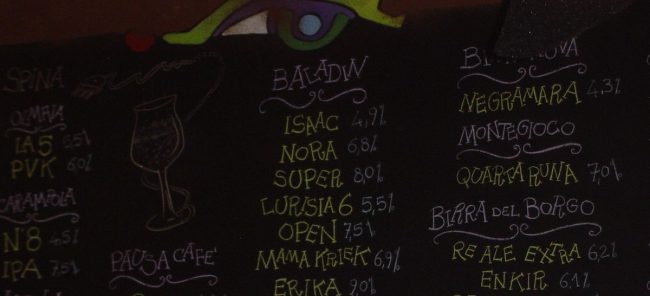 SPINA
OLMAIA
LA 5 6,5%
PVK 6,0%
CARAMPOLA
N°8 4,5%
IPA 7,5%
PAUSA CAFE'
BALADIN
ISAAC 4,9%
NORA 6,8%
SUPER 8,0%
LURISIA 6 5,5%
OPEN 7,5%
MAMA KRIEK 6,9%
ERIKA 9,0%
NEGRAMARA 4,3%
MONTEGIOCO
QUARTA RUNA 7,0%
BIRRA DEL BORGO
RE ALE EXTRA 6,2%
ENKIR 6,1%